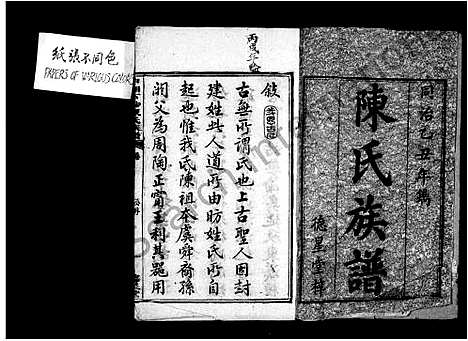 纸張不同色
PAPERS OF VARIOUS COLOR
同治乙丑年鐫
陳氏族譜
德星堂梓
敘
古無所謂氏也上古聖人因封
建姓此人道所由昉姓氏所自
起也惟我氏陳祖本虞舜裔孫
閼父為周陶正賓王利其器用